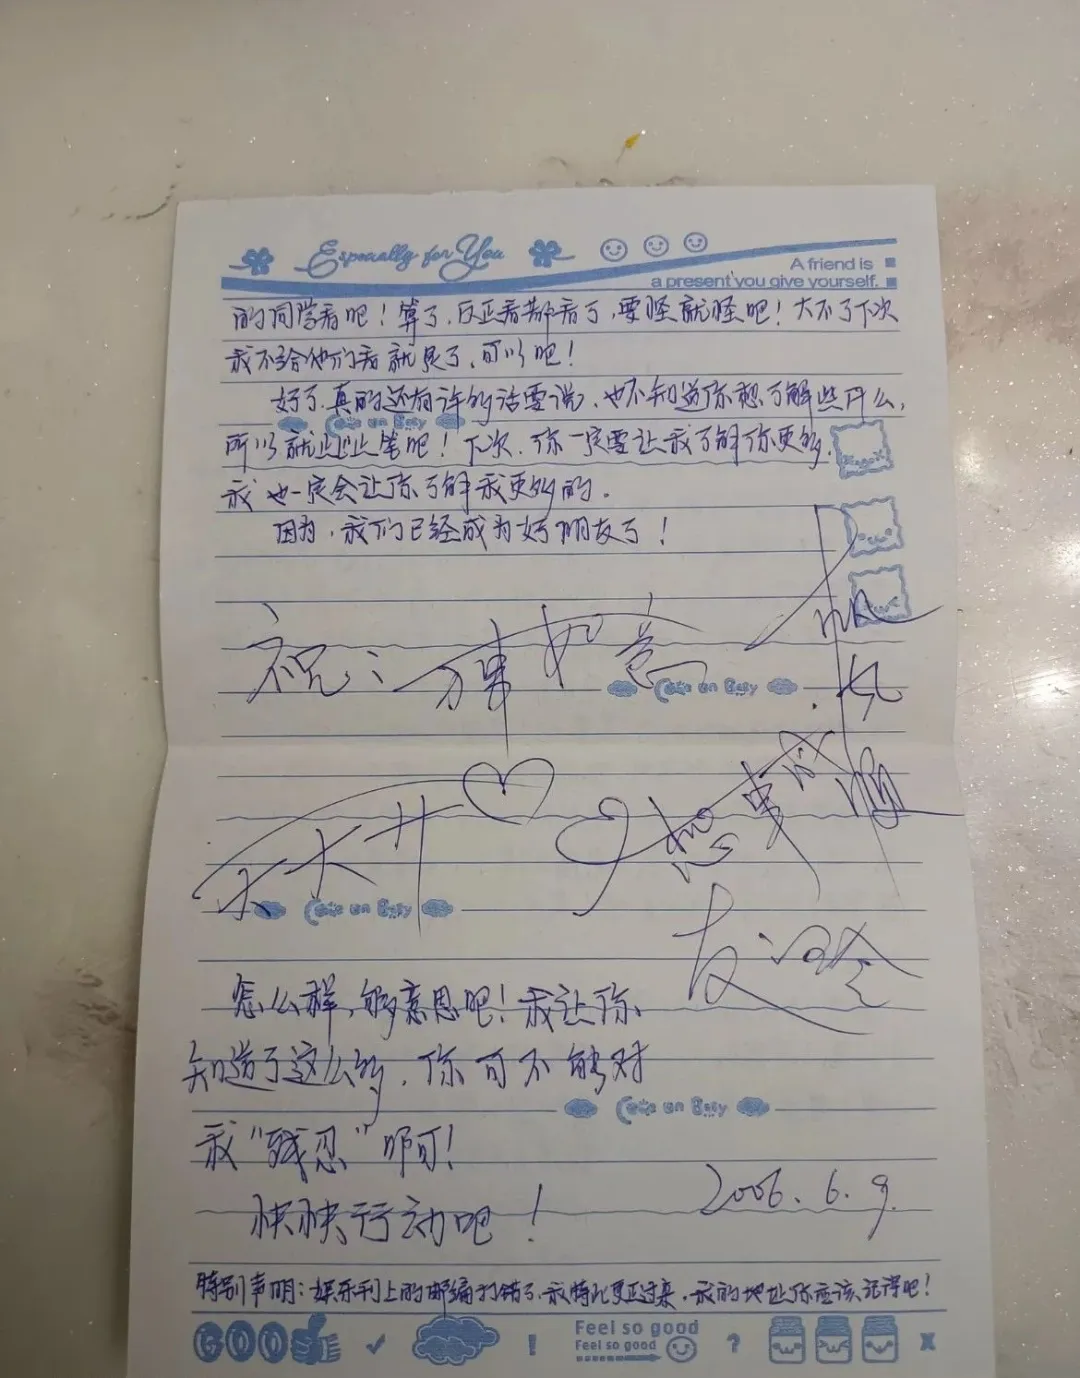 Especially for You
A friend is
a present you give yourself.
的同学看吧！算了，反正看都看了，要怪就怪吧！大不了下次
我不给他们看就是了，可以吧！
好了，真的还有许多话要说，也不知道你想了解些什么，
所以就此止笔吧！下次，你一定要让我了解你更多，
我也一定会让你了解我更多的。
因为，我们已经成为好朋友了！
祝：万事如意
天天开心
心想事成
友：
怎么样，够意思吧！我让你
知道了这么多，你可不能对
我“残忍”啊！
快快行动吧！
2006.6.9.
特别声明：娱乐刊上的邮编打错了，我特此更正过来，我的地址你应该记得吧！
GOOD
!
Feel so good
Feel so good
?
X